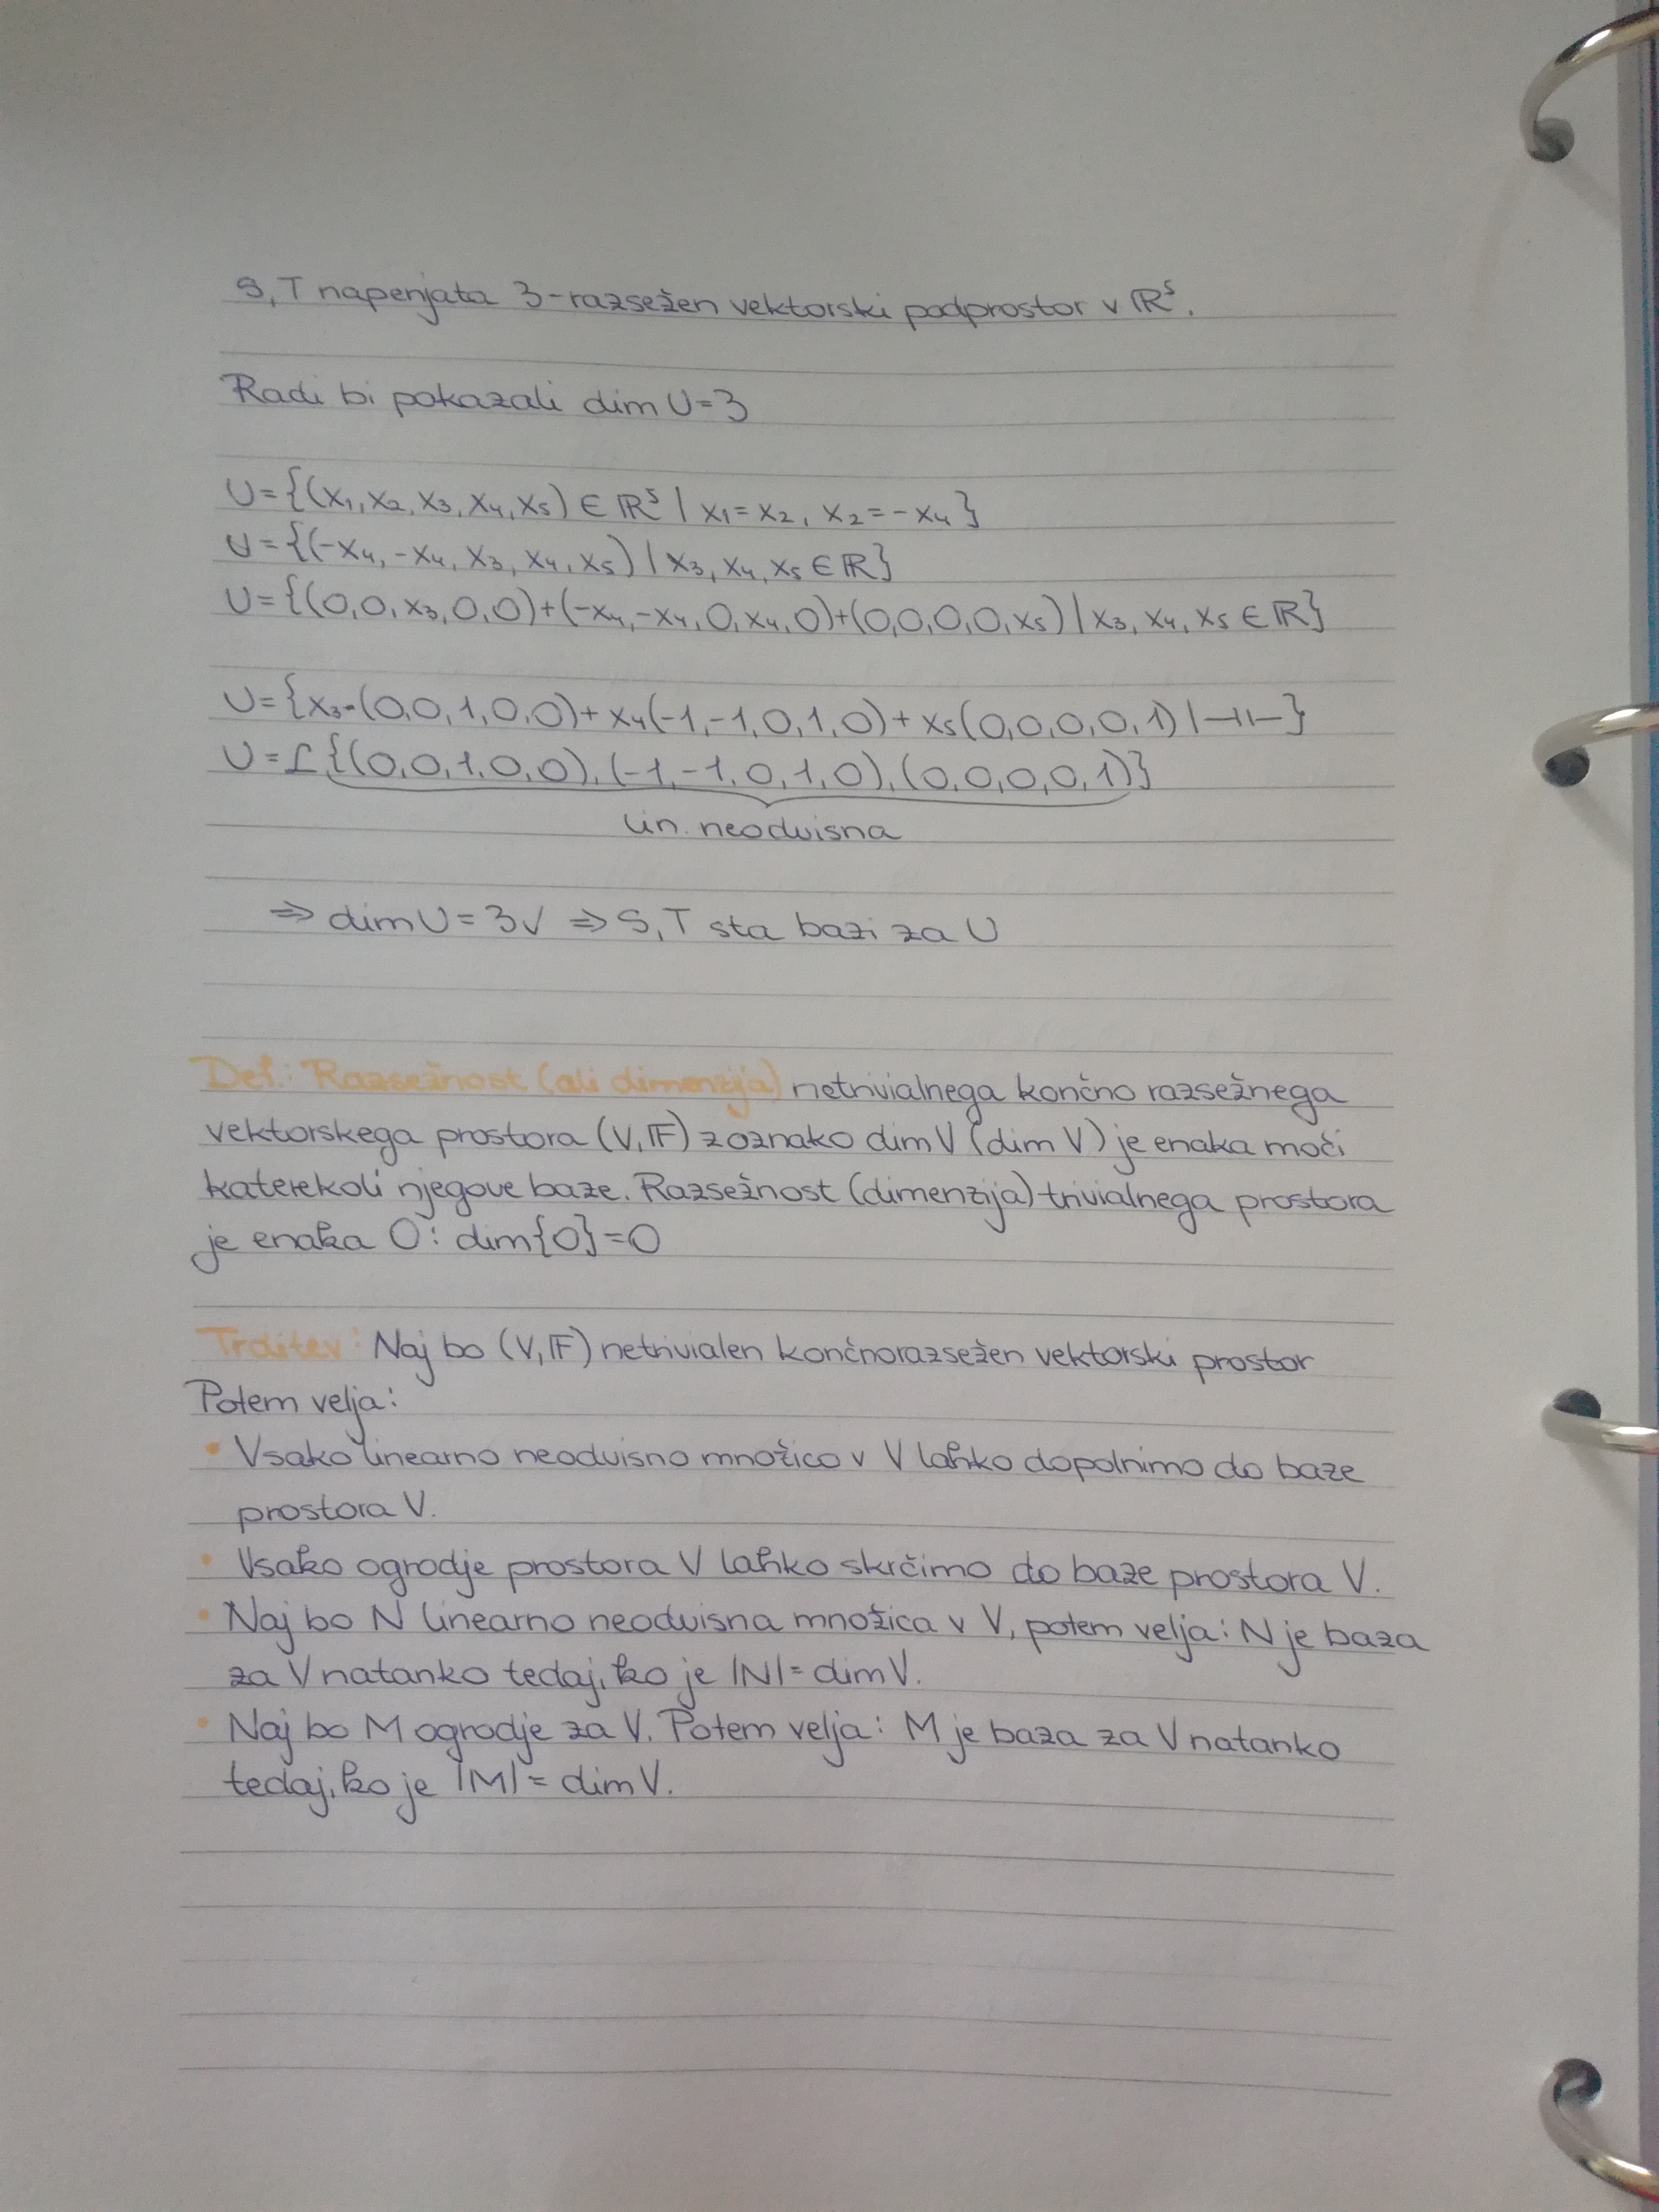 S, T napenjata 3-razsežen vektorski podprostor v ℝ⁵.
Radi bi pokazali dim U=3
U={(x₁, x₂, x₃, x₄, x₅) ∈ ℝ⁵ | x₁=x₂, x₂=-x₄}
U={(-x₄, -x₄, x₃, x₄, x₅) | x₃, x₄, x₅ ∈ ℝ}
U={(0,0,x₃,0,0)+(-x₄,-x₄,0,x₄,0)+(0,0,0,0,x₅) | x₃, x₄, x₅ ∈ ℝ}
U={x₃·(0,0,1,0,0)+x₄(-1,-1,0,1,0)+x₅(0,0,0,0,1) | -||-}
U=ℒ{(0,0,1,0,0),(-1,-1,0,1,0),(0,0,0,0,1)}
lin. neodvisna
⇒ dim U = 3✓ ⇒ S, T sta bazi za U
Def.: Razsežnost (ali dimenzija) netrivialnega končno razsežnega
vektorskega prostora (V, 𝔽) z oznako dim V (dim V) je enaka moči
katerekoli njegove baze. Razsežnost (dimenzija) trivialnega prostora
je enaka 0: dim{0}=0
Trditev: Naj bo (V, 𝔽) netrivialen končnorazsežen vektorski prostor
Potem velja:
• Vsako linearno neodvisno množico v V lahko dopolnimo do baze
prostora V.
• Vsako ogrodje prostora V lahko skrčimo do baze prostora V.
• Naj bo N linearno neodvisna množica v V, potem velja: N je baza
za V natanko tedaj, ko je |N| = dim V.
• Naj bo M ogrodje za V. Potem velja: M je baza za V natanko
tedaj, ko je |M| = dim V.